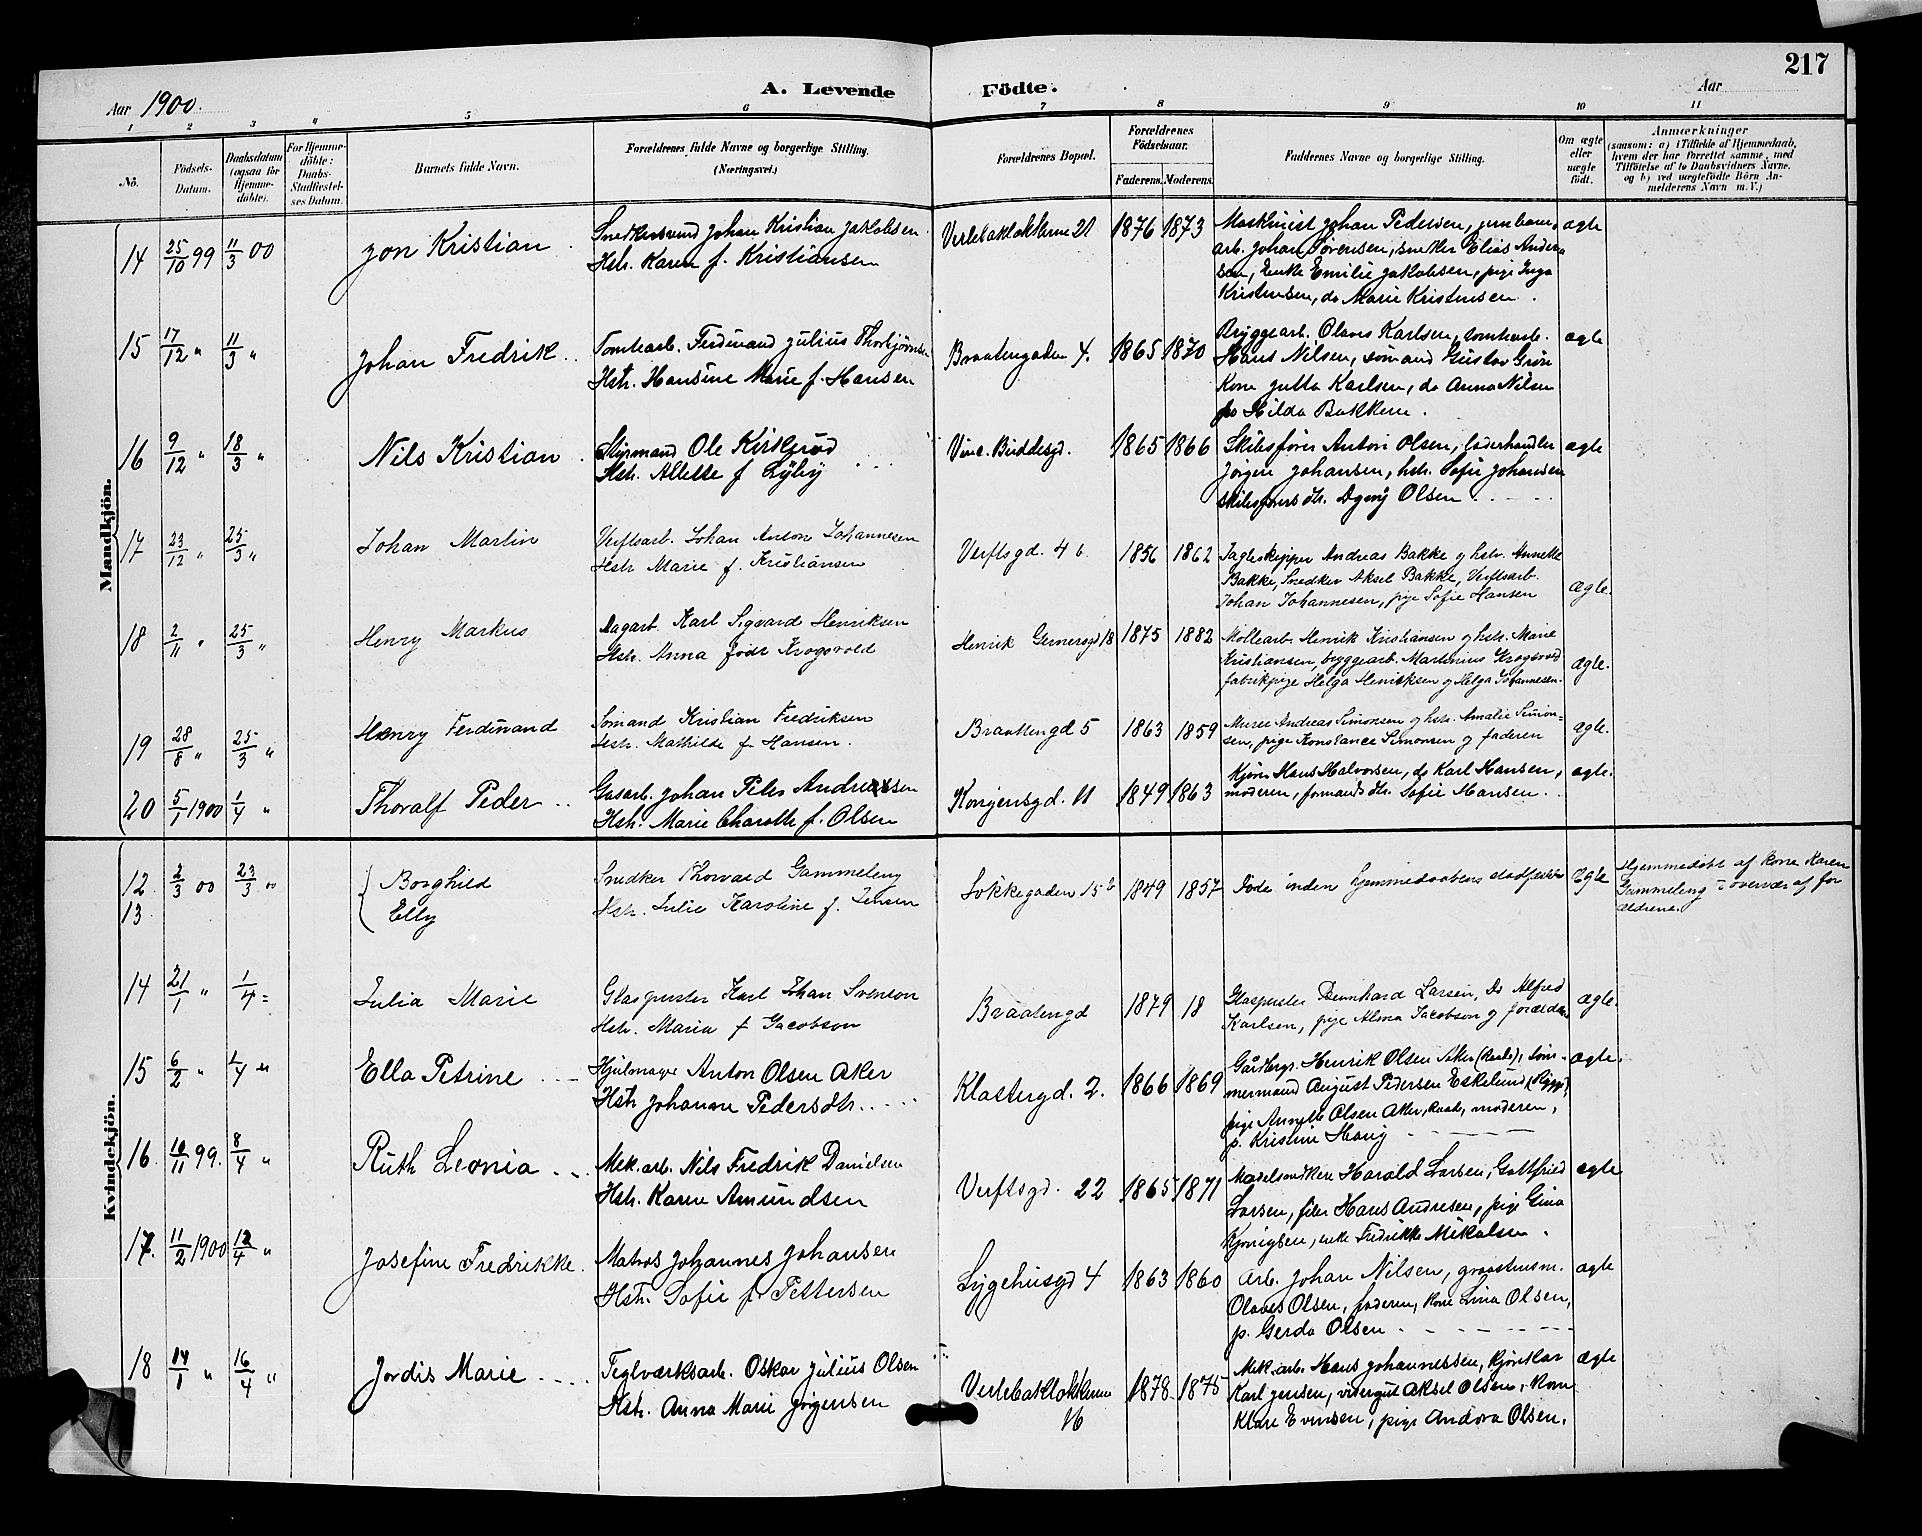 217
Aar 1900.
A. Levende Födte.
Aar
1 2 3 4 5 6 7 8 9 10 11
Nö.
Födsels-Datum.
Daabsdatum (ogsaa for Hjemme-döbte).
For Hjemme-döbte: Daabs-Stadfæstel-ses Datum.
Barnets fulde Navn.
Forældrenes fulde Navne og borgerlige Stilling. (Næringsvei.)
Forældrenes Bopæl.
Forældrenes Födselsaar.
Faderens. Moderens.
Faddernes Navne og borgerlige Stilling.
Om ægte eller uægte födt.
Anmærkninger
(saasom: a) i Tilfælde af Hjemmedaab, hvem der har forrettet samme, med Tilföielse af to Daabsvidners Navne, og b) ved uægtefödte Börn An-melderens Navn m. V.)
Mandkjön.
14 25/10 99 11/3 00 Jon Kristian
Snedkersvend Johan Kristian Jakobsen
Hstr. Karen f. Kristiansen
Verlebakløkkerne 21 1876 1873
Maskinist Johan Pedersen, jernbane
arb. Johan Sørensen, snekker Elias Ander
sen, Enke Emilie Jakobsen, pige Inga
Kristensen, do Marie Kristensen. ægte
15 17/12 " 11/3 " Johan Fredrik
Tomtearb. Ferdinand Julius Thorbjørnsen
Hstr. Hansine Marie f. Hansen
Braatengaden 4. 1865 1870
Bryggearb. Olaves Karlsen, tomtearb.
Hans Nilsen, sømand Gustav Grøn
Kone Jutta Karlsen, do Anna Nilsen
Hilda Bakkene. ægte
16 9/12 " 18/3 " Nils Kristian
Styrmand Ole Kirkerød
Hstr. Allette f Lyby
Vinc. Buddesgd. 1865 1866
Skibsfører Anton Olsen, læderhandler
Jørgen Johansen, hstr. Sofie Johansen
skibsførers dtr. Dgny Olsen ægte
17 23/12 " 25/3 " Johan Martin
Verftsarb. Johan Anton Johannesen
Hstr Marie f. Kristiansen
Verftsgd. 4 b. 1856 1862
Jagteskipper Andreas Bakke og hstr. Annette
Bakke, Snedker Aksel Bakke, Verftsarb.
Johan Johannesen, pige Sofie Hansen Ægte.
18 2/11 " 25/3 " Henry Markus
Dagarb Karl Sigvard Henriksen
Hstr. Anna født Krogsvold
Henrik Gernersgd 18 1875 1882
Møllearb. Henrik Kristiansen og hstr. Marie
Kristiansen, bryggearb. Martinius Krogsvold
fabrikpige Helga Henriksen og Helga Johannesen. Ægte.
19 28/8 " 25/3 " Henry Ferdinand
Sømand Kristian Fredriksen
Hstr. Mathilde f. Hansen.
Braatengd 5 1863 1859
Murer Andreas Simonsen og hstr. Amalie Simon-
sen, pige Konstance Simonsen og faderen Ægte.
20 5/1 1900 1/4 " Thoralf Peder
Gasarb. Johan Peter Andreassen
Hstr. Marie Charotte f. Olsen
Kongensgd. 11 1849 1863
Kjører Hans Halvorsen, do Karl Hansen,
moderen, formands dtr. Sofie Hansen. ægte.
Kvindekjön.
12 13 2/3 00 23/3 00 Borghild
Elly
Snedker Thorvard Gammeleng
Hstr. Julie Karoline f. Jensen
Løkkegaden 15 b 1849 1857
Døde inden hjemmedaabens stadfæstelse Egte
Hjemmedøbt af Kone Karen
Gammeleng i overvær af for
ældrene.
14 21/1 " 1/4 = Julia Marie
Glaspuster Karl Johan Svenson
Hstr. Maria f Jacobson
Braatengd 1879 18
Glaspuster Bernhard Larsen, Do Alfred
Karlsen, pige Alma Jacobson og forældrene Ægte.
15 6/2 " 1/4 " Ella Petrine
Hjulmager Anton Olsen Aker
Hstr Johanne Pedersdtr.
Klostergd. 2. 1866 1869
Gårdbrgr. Henrik Olsen Aker (Raade), tøm-
mermand August Pedersen Eskelund (Rygge),
pige Annette Olsen Aker, Raade, moderen,
p. Kristine Haug ægte.
16. 10/11 99. 8/4 " Ruth Leonia
Mek.arb. Nils Fredrik Danielsen
Hstr. Karen Amundsen
Verftsgd. 22 1865 1871
Modelsnedkere Harald Larsen, Gottfried
Larsen, filer Hans Andresen, pige Gina
Kjønigsen, enke Fredrikke Mikalsen. ægte
17. 11/2 1900 12/4 " Josefine Fredrikke.
Matros Johannes Johansen
Hstr. Sofie f. Pettersen
Sygehusgd 4 1863 1860
Arb. Johan Nilsen, graastensm.
Olaves Olsen, faderen, Kone Lina Olsen,
p. Gerda Olsen ægte
18 14/1 " 16/4 " Jordis Marie
Teglværksarb. Oskar Julius Olsen
Hstr. Anna Marie Jørgensen
Verlebakløkkerne 16 1878 1875
Mek.arb. Hans Johannessen, Kjørekar
Karl Jensen, visergut Aksel Olsen, Kone
Klara Evensen, pige Andora Olsen. ægte